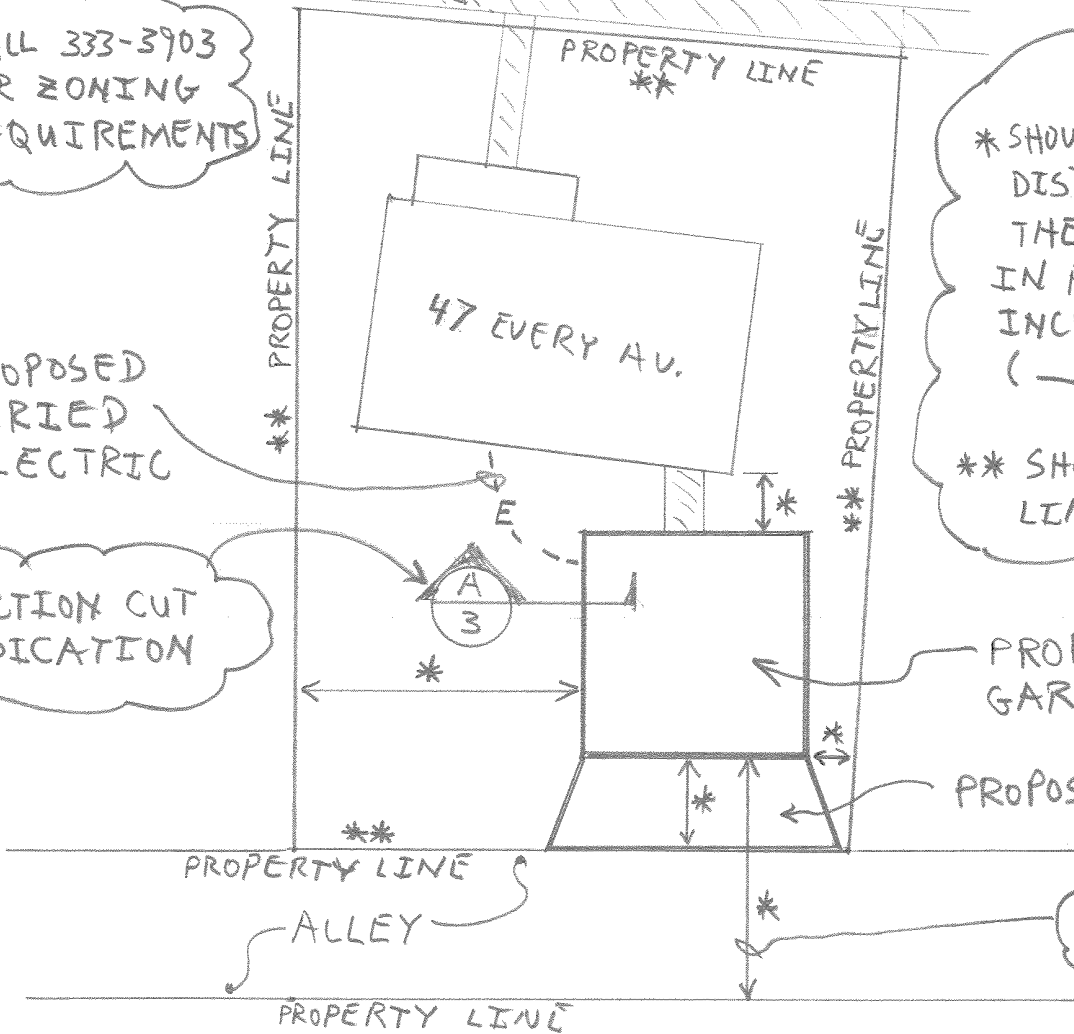 LL 333-3903
R ZONING
EQUIREMENTS
PROPERTY LINE
**
** PROPERTY LINE
** PROPERTY LINE
* SHOU
DIST
THE
IN
INC
(—
** SH
LIN
47 EVERY AV.
OPOSED
RIED
LECTRIC
E
*
A
3
CTION CUT
DICATION
*
PROP
GAR
*
*
PROPOS
**
PROPERTY LINE
ALLEY
*
PROPERTY LINE